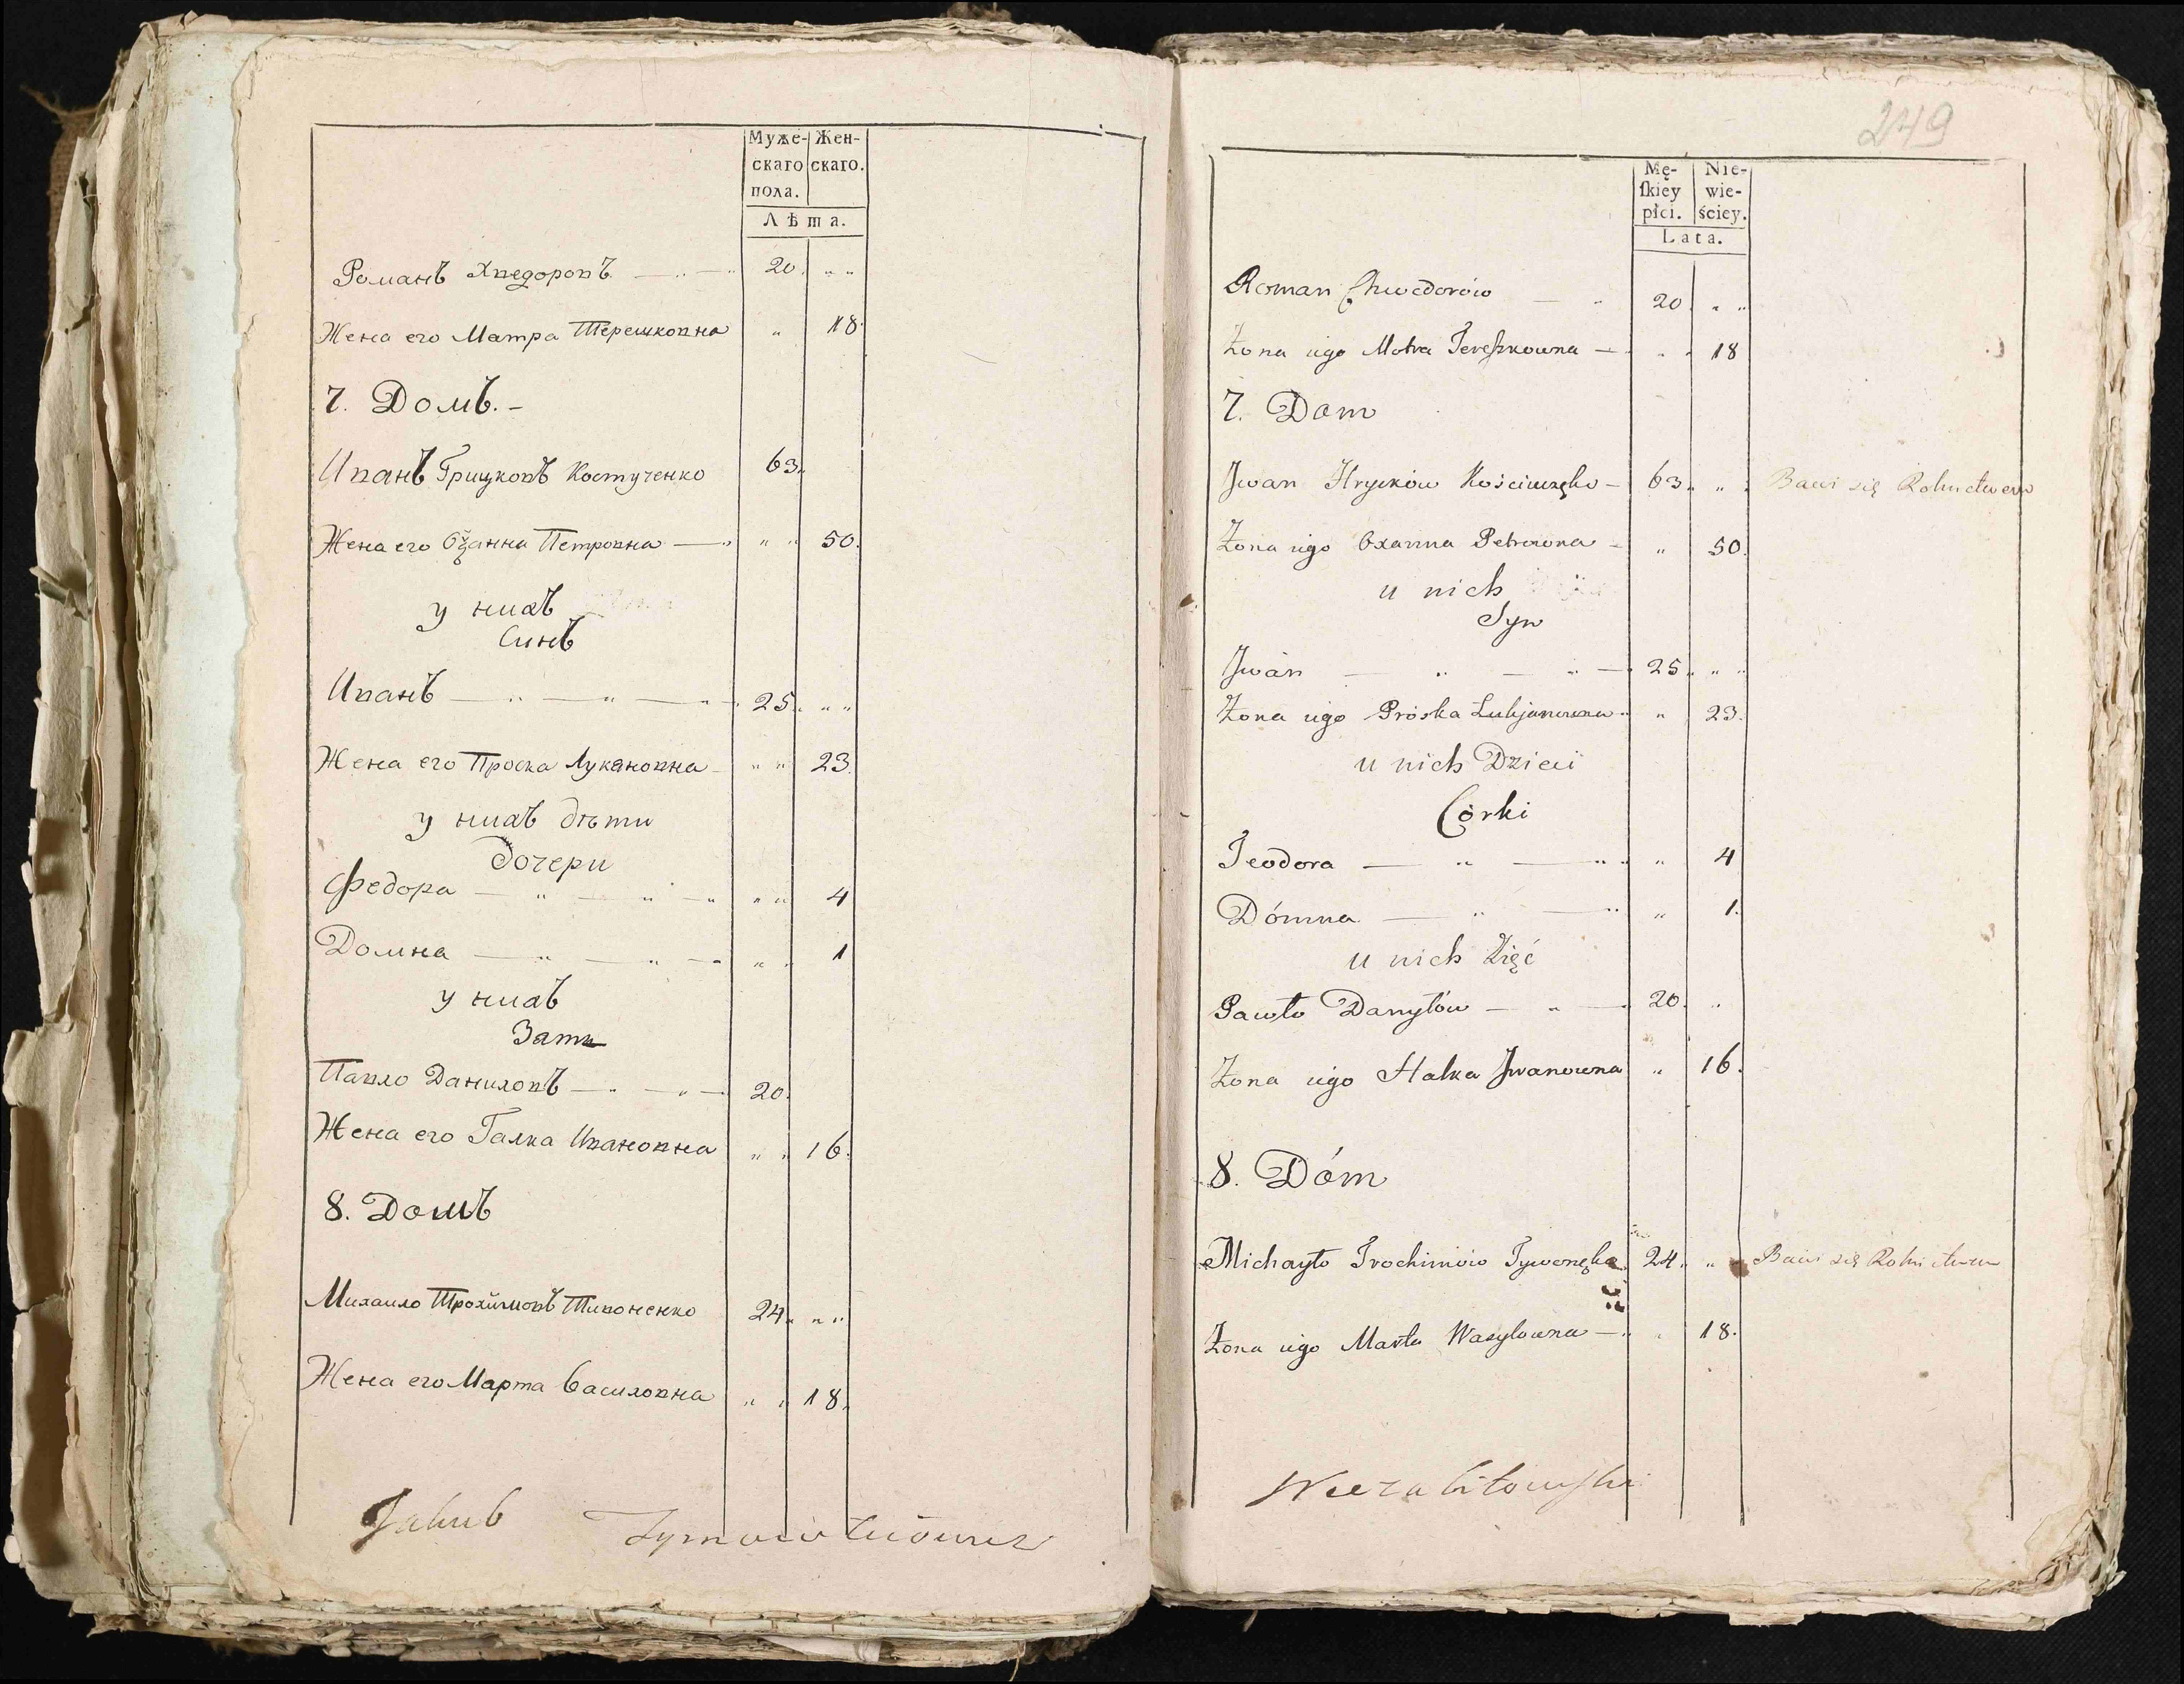 Муже- Жен-
скаго скаго.
пола.
Лѣта.
Романъ Хведоровъ 20. „ „
Жена его Матра Терешковна „ 18.
7. Домъ. -
Иванъ Грицковъ Костученко 63.
Жена его Оѯанна Петровна „ „ 50.
у нихъ
Синъ
Иванъ 25. „ „
Жена его Проска Лукановна „ „ 23.
у нихъ дѣти
дочери
Федора „ „ 4
Домна „ „ 1
у нихъ
Зать
Павло Даниловъ 20.
Жена его Галка Ивановна „ „ 16.
8. Домъ
Михаило Трохимовъ Тивоненко 24. „ „
Жена его Марта Василовна „ „ 18.
Jakub
249
Mę- Nie-
ſkiey wie-
płci. ściey.
Lata.
Roman Chwedorów 20. „ „
Żona iego Motra Tereſzkowna „ 18
7. Dom
Jwan Hryćków 63. „ Bawi się Rolnictwem
Żona iego Oxanna Petrowna „ 50.
u nich
Syn
Jwan 25. „ „
Żona iego Próska Lukjanowna „ 23.
u nich Dzieci
Córki
Teodora „ 4
Dómna „ 1.
u nich Zięć
Pawło Danyłów 20. „
Żona iego Halka Jwanowna „ 16.
8. Dóm
Michayło Trochimów 24. „ Bawi się Rolnictwem
Żona iego Marta Wasylowna „ 18.